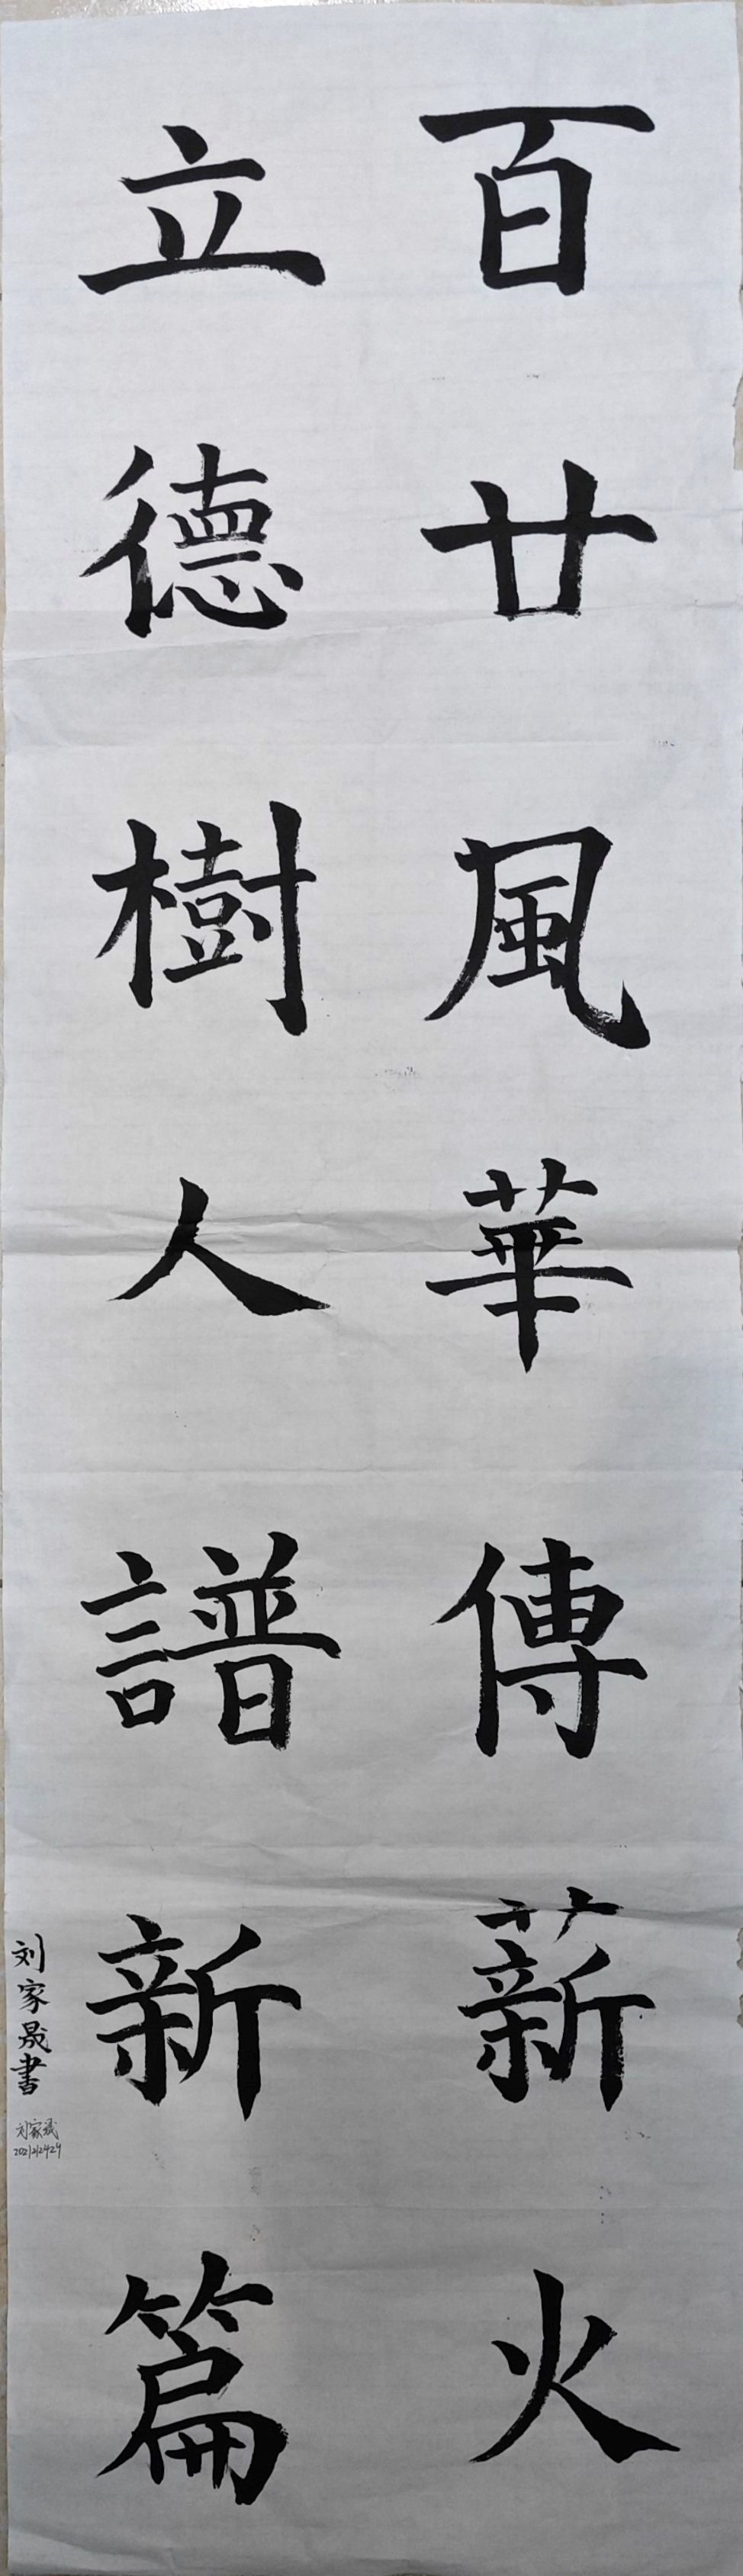 百廿風華傳薪火
立德樹人譜新篇
刘家晟書
刘家晟